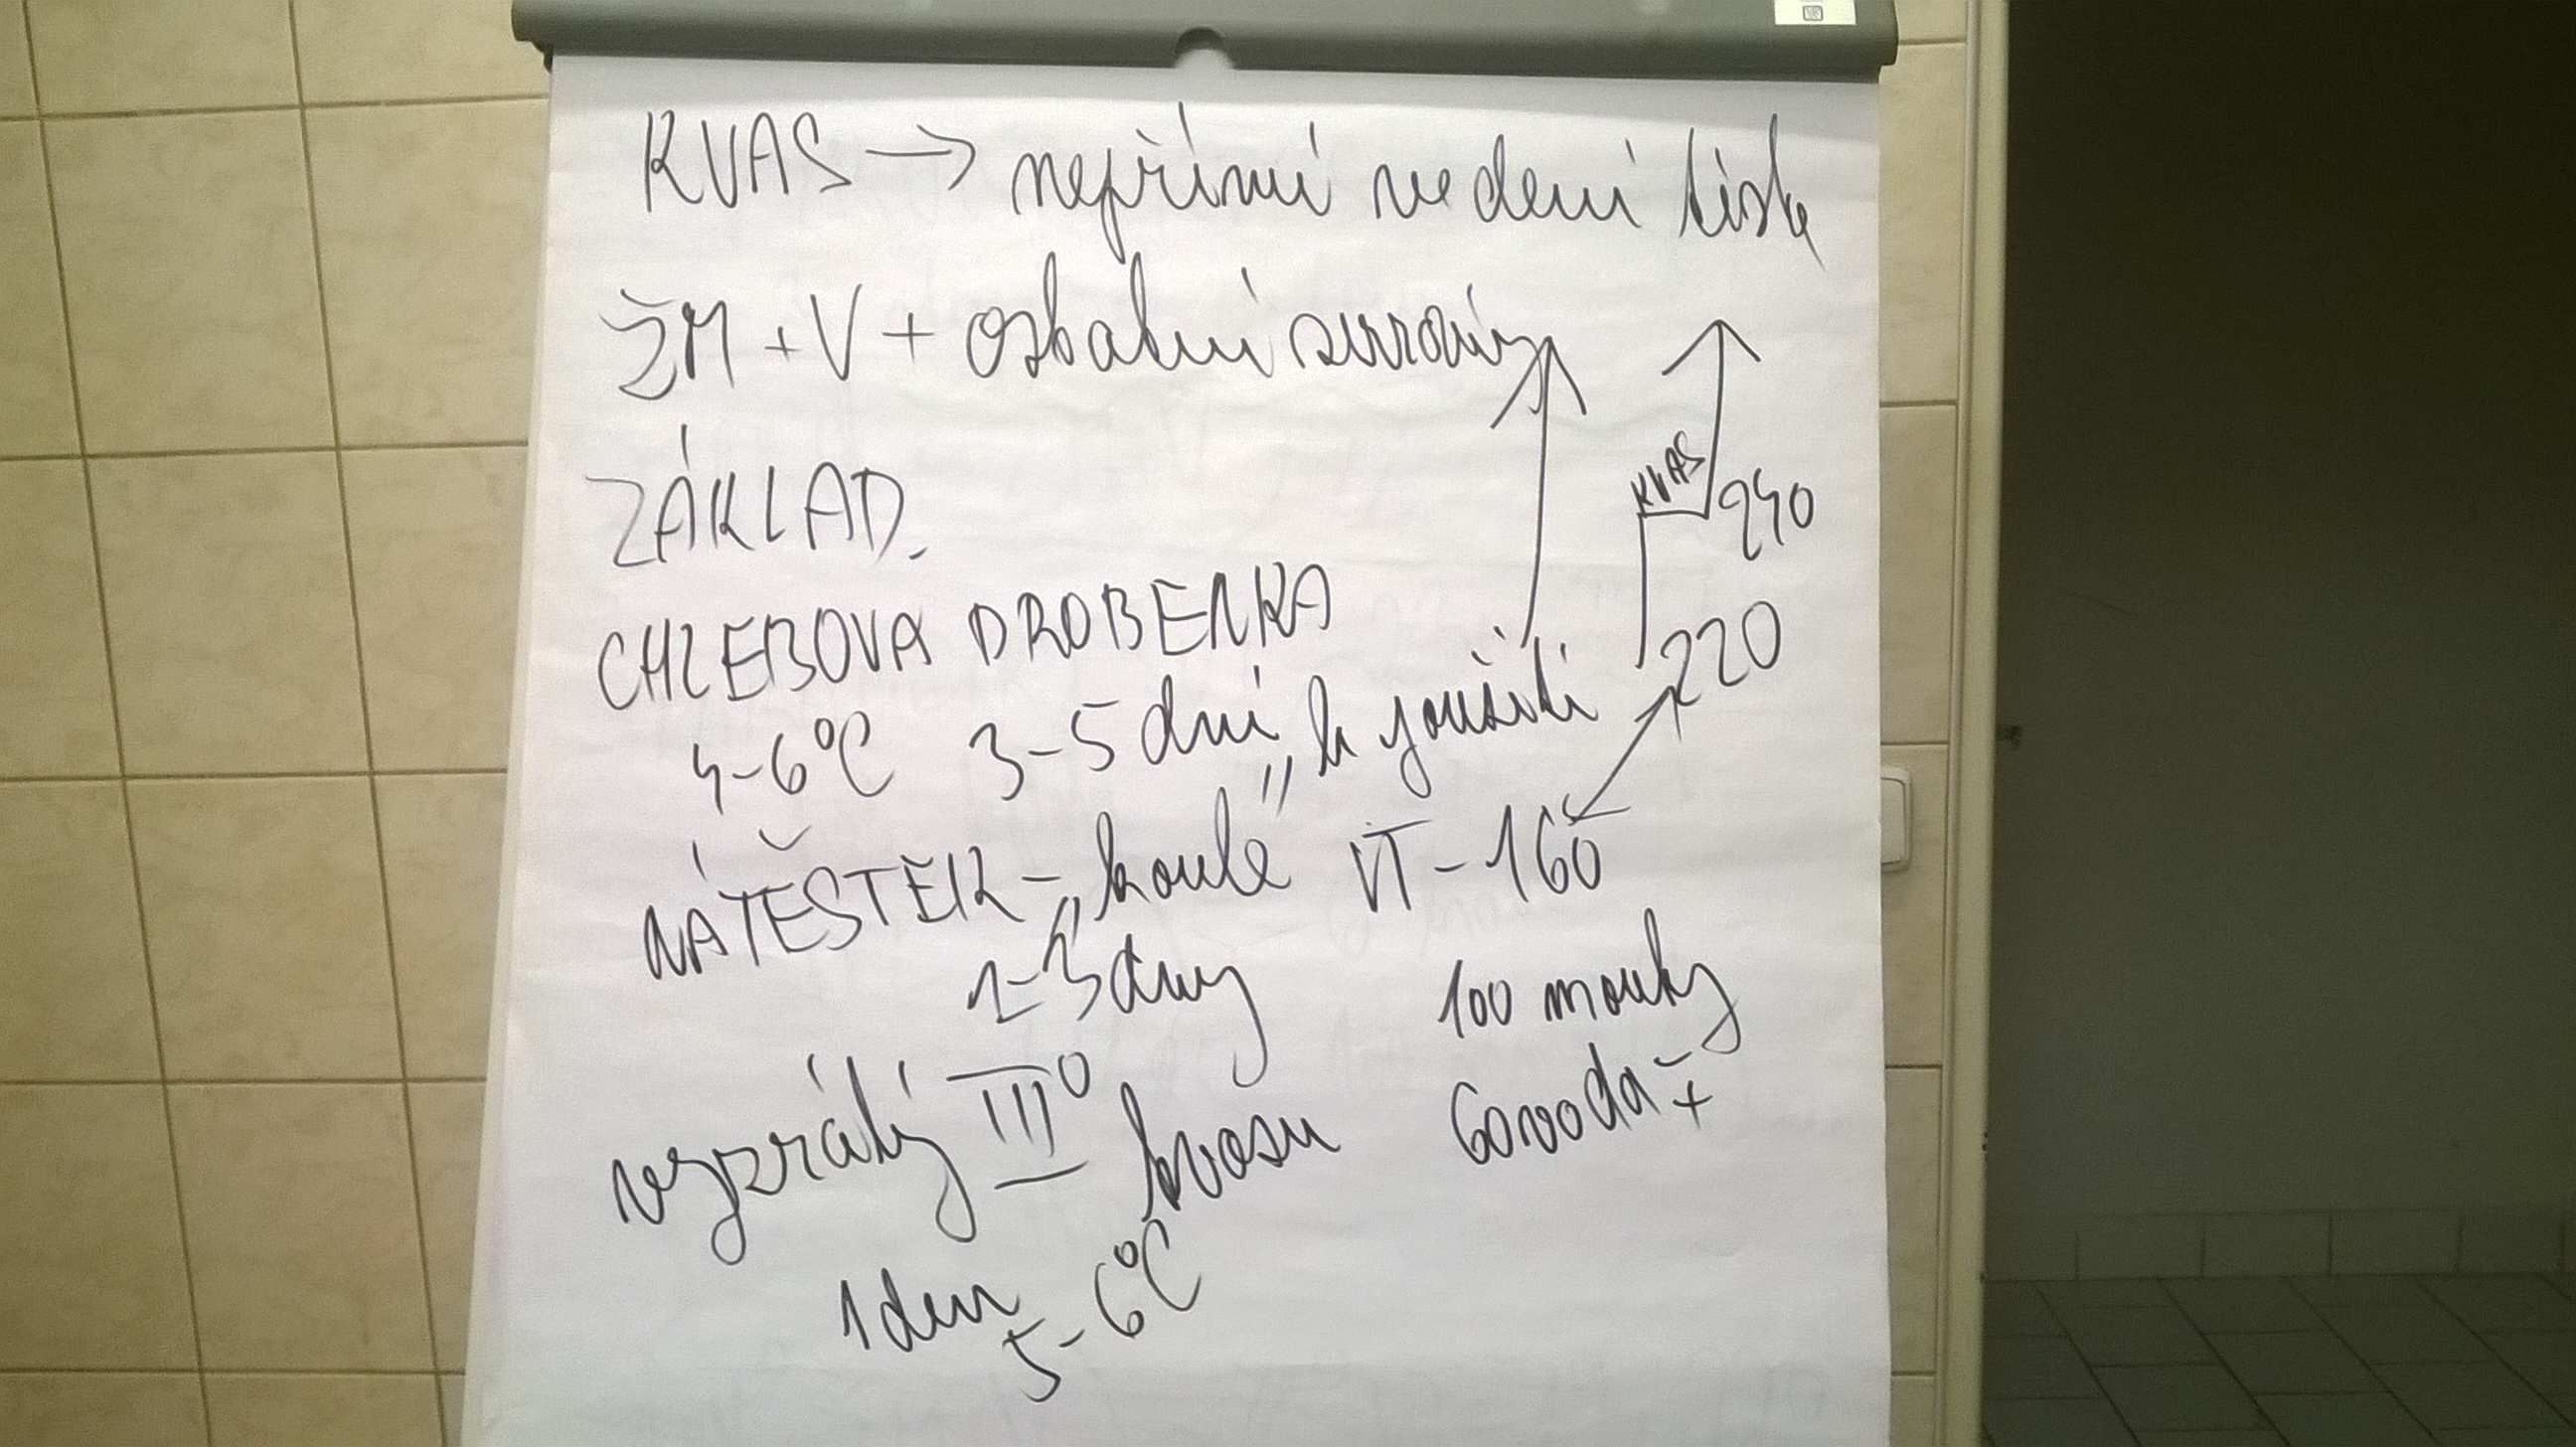 KVAS → nepřímé vedení těsta
ŽM + V + ostatní suroviny
ZÁKLAD.
KVAS
240
CHLEBOVA DROBENKA
220
4-6°C 3-5 dní k použití
NÁTĚSTEK - „koule" VT - 160
2-3 dny
100 mouky
60 voda ž
vyzrálý III° kvasu
1 den
5-6°C